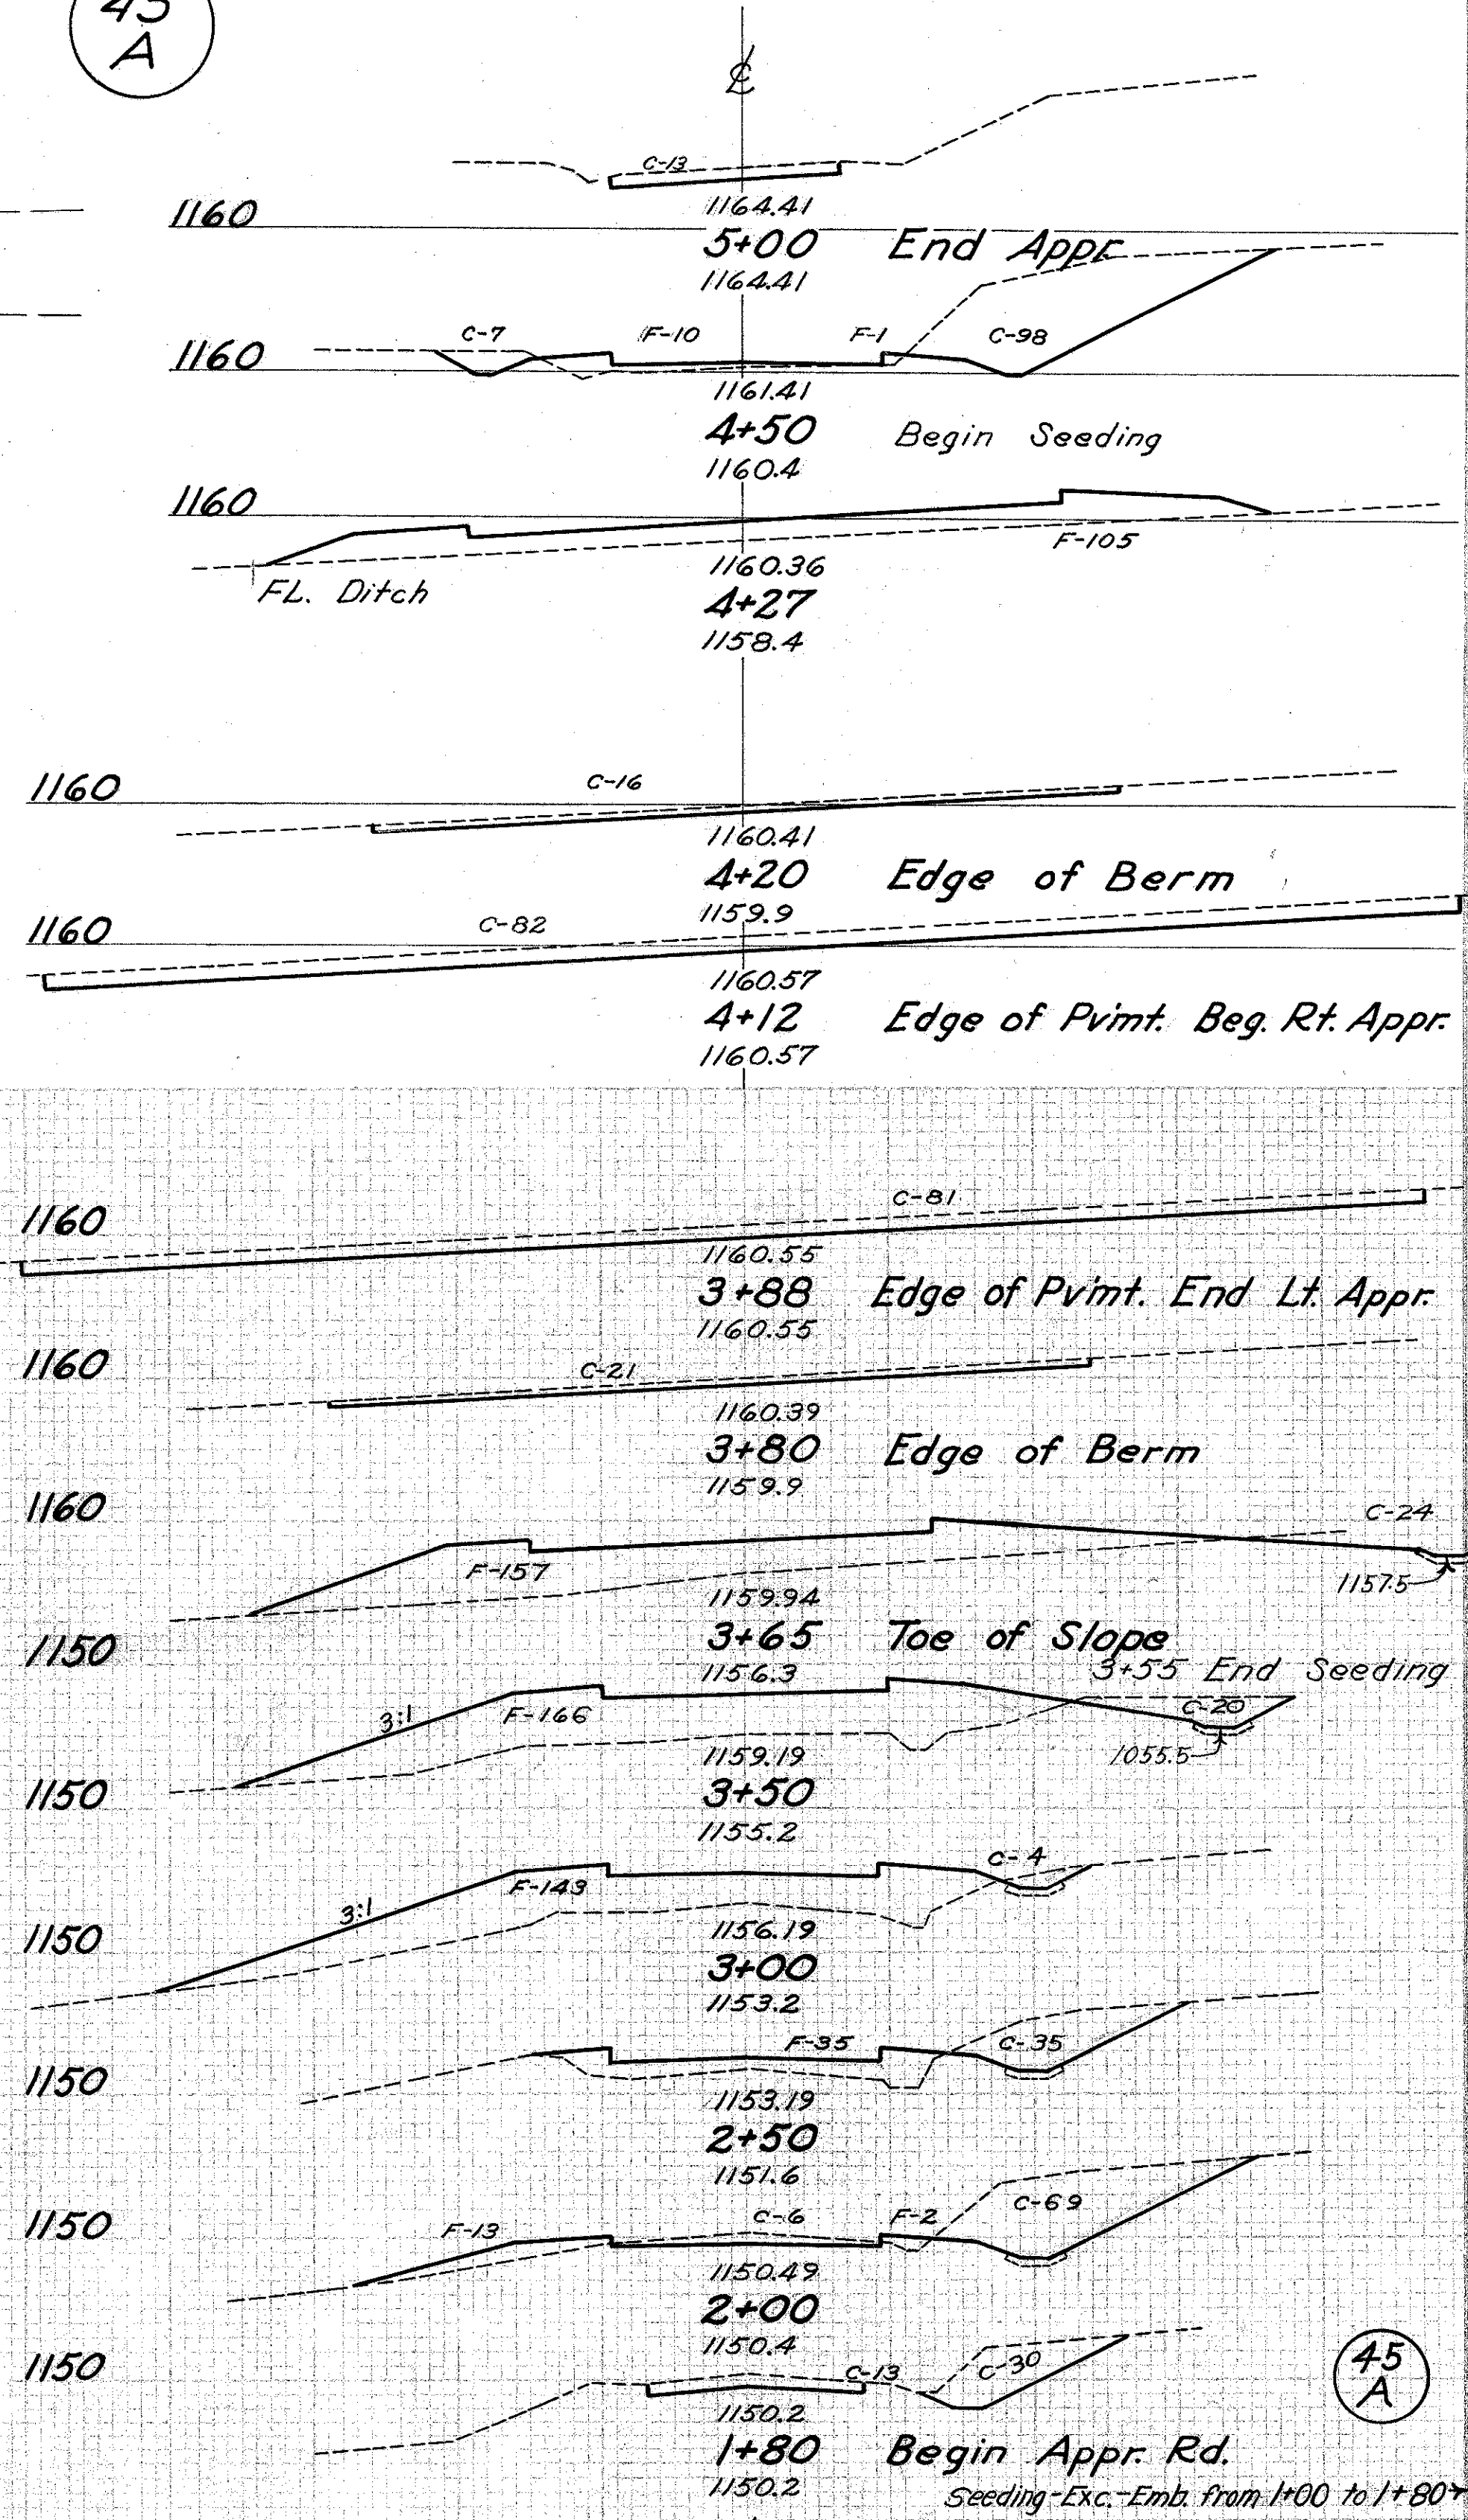 45
A
℄
C-13
1160
1164.41
5+00 End Appr.
1164.41
C-7 F-10 F-1 C-98
1160
1161.41
4+50 Begin Seeding
1160.4
1160
F-105
1160.36
FL. Ditch
4+27
1158.4
1160
C-16
1160.41
4+20 Edge of Berm
1159.9
1160
C-82
1160.57
4+12 Edge of Pvimt. Beg. Rt. Appr.
1160.57
C-81
1160
1160.55
3+88 Edge of Pvimt. End Lt. Appr.
1160.55
1160
C-21
1160.39
3+80 Edge of Berm
1159.9
1160
C-24
F-157
1157.5
1159.94
3+65 Toe of Slope
1150
1156.3
3+55 End Seeding
3:1 F-166 C-20
1159.19
1055.5
3+50
1150
1155.2
C-4
F-143
3:1
1156.19
1150
3+00
1153.2
F-35 C-35
1150
1153.19
2+50
1151.6
C-69
F-13 C-6 F-2
1150
1150.49
2+00
1150.4
C-13 C-30
1150
45
A
1150.2
1+80 Begin Appr. Rd.
1150.2
Seeding-Exc.-Emb. from 1+00 to 1+80